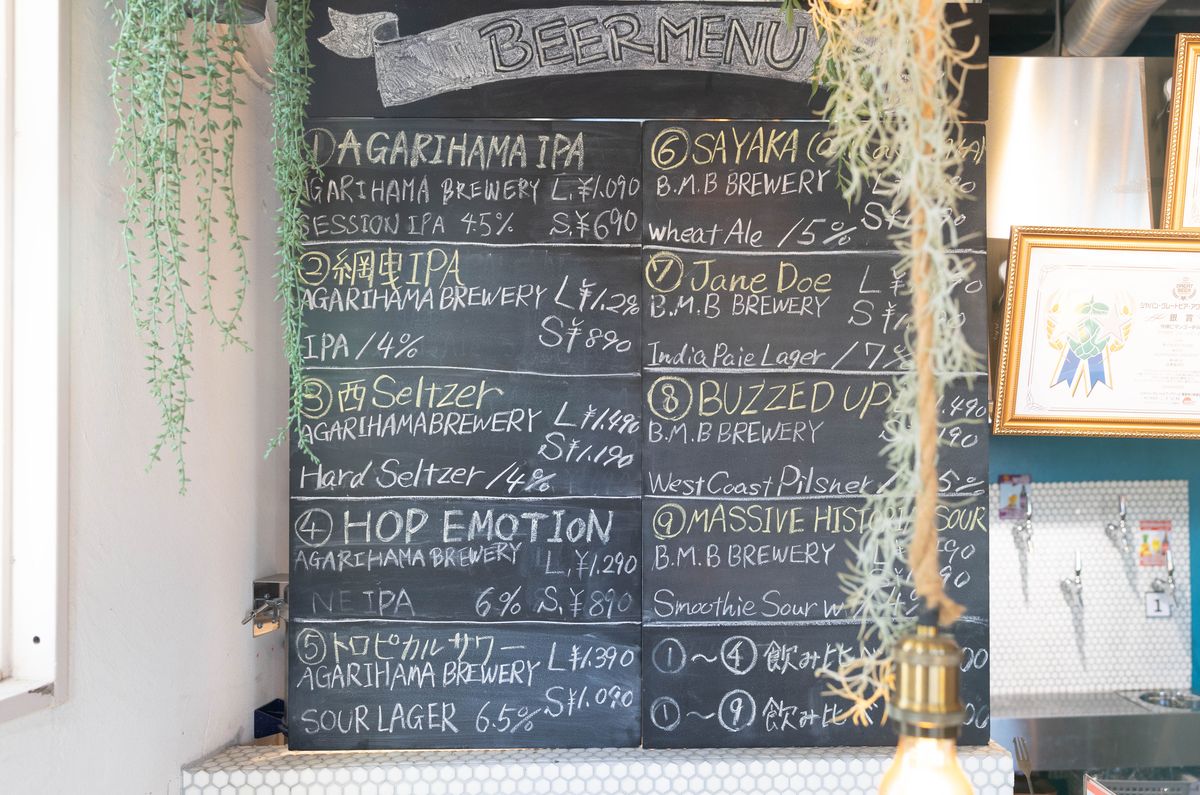 BEER MENU
① AGARIHAMA IPA
AGARIHAMA BREWERY L.¥1.090
SESSION IPA 4.5% S.¥690
② 網曳IPA
AGARIHAMA BREWERY L¥1.290
IPA /4% S¥890
③ 西 Seltzer
AGARIHAMA BREWERY L¥1.490
S¥1.190
Hard Seltzer /4%
④ HOP EMOTION
AGARIHAMA BREWERY L.¥1.290
NE IPA 6% S.¥890
⑤ トロピカルサワー
AGARIHAMA BREWERY L¥1.390
S¥1.090
SOUR LAGER 6.5%
⑥ SAYAKA
B.M.B BREWERY
Wheat Ale /5%
⑦ Jane Doe
B.M.B BREWERY
India Paie Lager /7%
⑧ BUZZED UP
B.M.B BREWERY
West Coast Pilsner
⑨ MASSIVE SOUR
B.M.B BREWERY
Smoothie Sour
①～④ 飲み比
①～⑨ 飲み比
銀賞
1